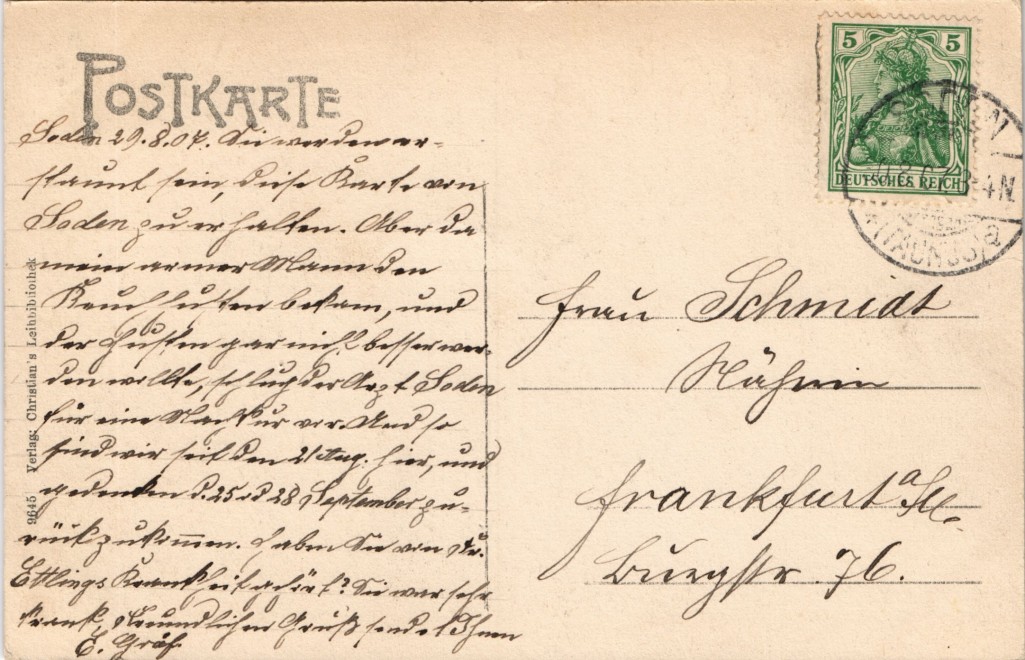 POSTKARTE
5 5
DEUTSCHES REICH
(TAUNUS) a
Soden 29.8.07. Sie werden er-
staunt sein, diese Karte von
Soden zu erhalten. Aber da
mein armer Mann den
Keuchhusten bekam, und
der Husten gar nicht besser wer-
den wollte, schlug der Arzt Soden
für eine Nachkur vor. Und so
sind wir seit den 21 Aug. hier, und
gedenken d. 25 od 28 September zu-
rück zu kommen. Haben Sie von
Ettlings Krankheit gehört? Sie war sehr
krank. Freundlichen Gruß sendet Ihnen
E. Gräf
Frau Schmidt
Näherin
Frankfurt a/M.
Burgstr 76.
9645 Verlag: Christian's Leihbibliothek